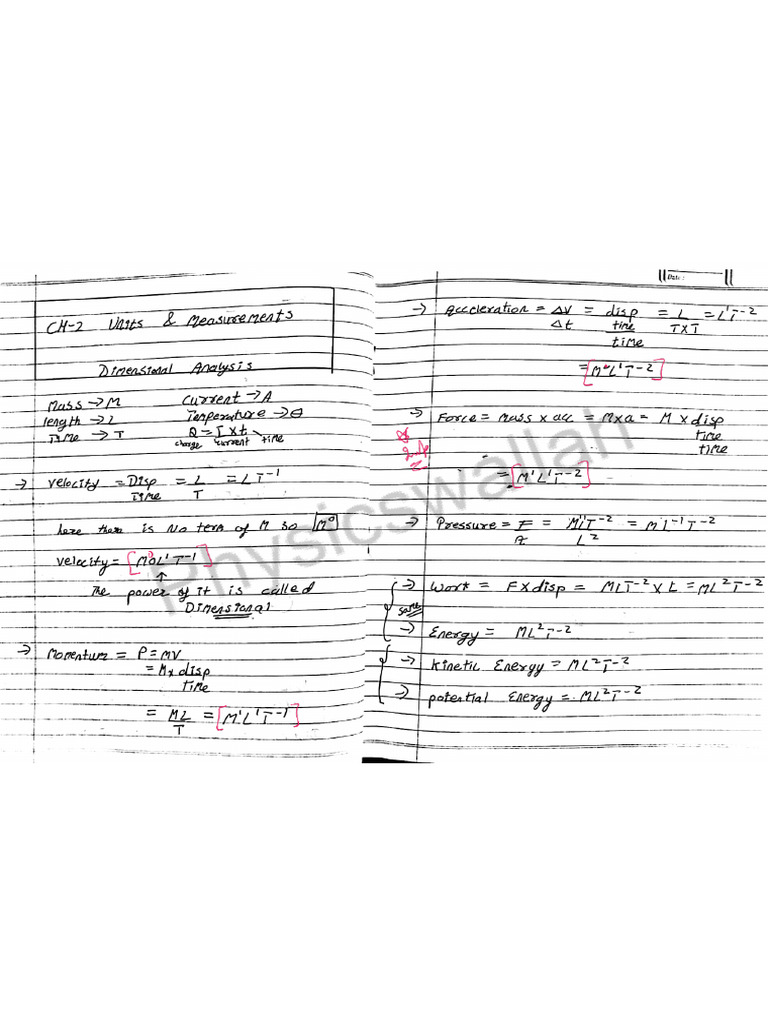 CH-2 Units & Measurements
Dimensional Analysis
Mass → M Current → A
length → L Temperature → θ
Time → T Q = I × t
charge current time
→ Velocity = Disp = L = LT-1
Time T
here there is No term of M so M⁰
velocity = [M⁰L¹T-1]
↑
The power of it is called
Dimensional
→ Momentum = P = MV
= M × disp
time
= ML = [M¹L¹T-1]
T
Date :
→ Acceleration = ΔV = disp = L = L¹T-2
Δt time T×T
time
= [M⁰L¹T-2]
→ Force = Mass × acc = M×a = M × disp
time
time
= [M¹L¹T-2]
→ Pressure = F = M¹L¹T-2 = M¹L-1T-2
A L²
→ Work = F × disp = MLT-2 × L = ML²T-2
same
→ Energy = ML²T-2
→ Kinetic Energy = ML²T-2
→ potential Energy = ML²T-2
Physicswallah